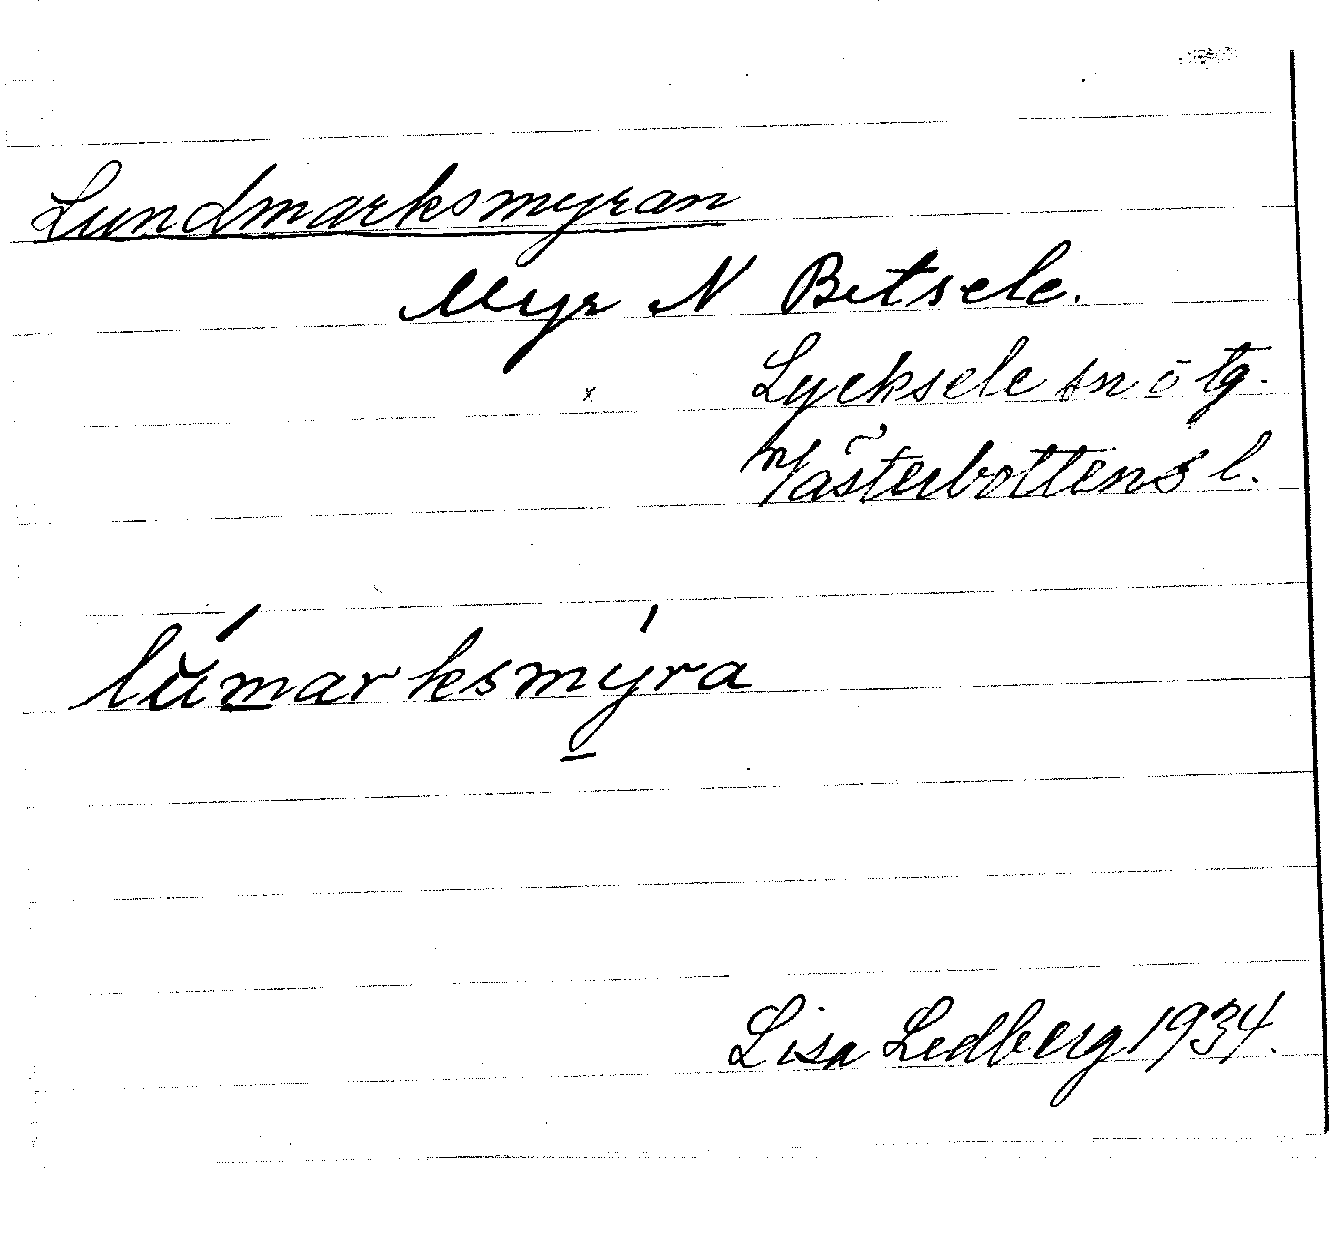 Lundmarksmyran
Myr N Betsele.
Lycksele sn o tg.
Västerbottens l.
lúmarksmýra
Lisa Ledberg 1934.